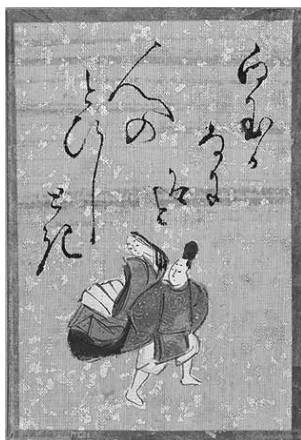 白玉か
なに
そと
人の
とひし
とき